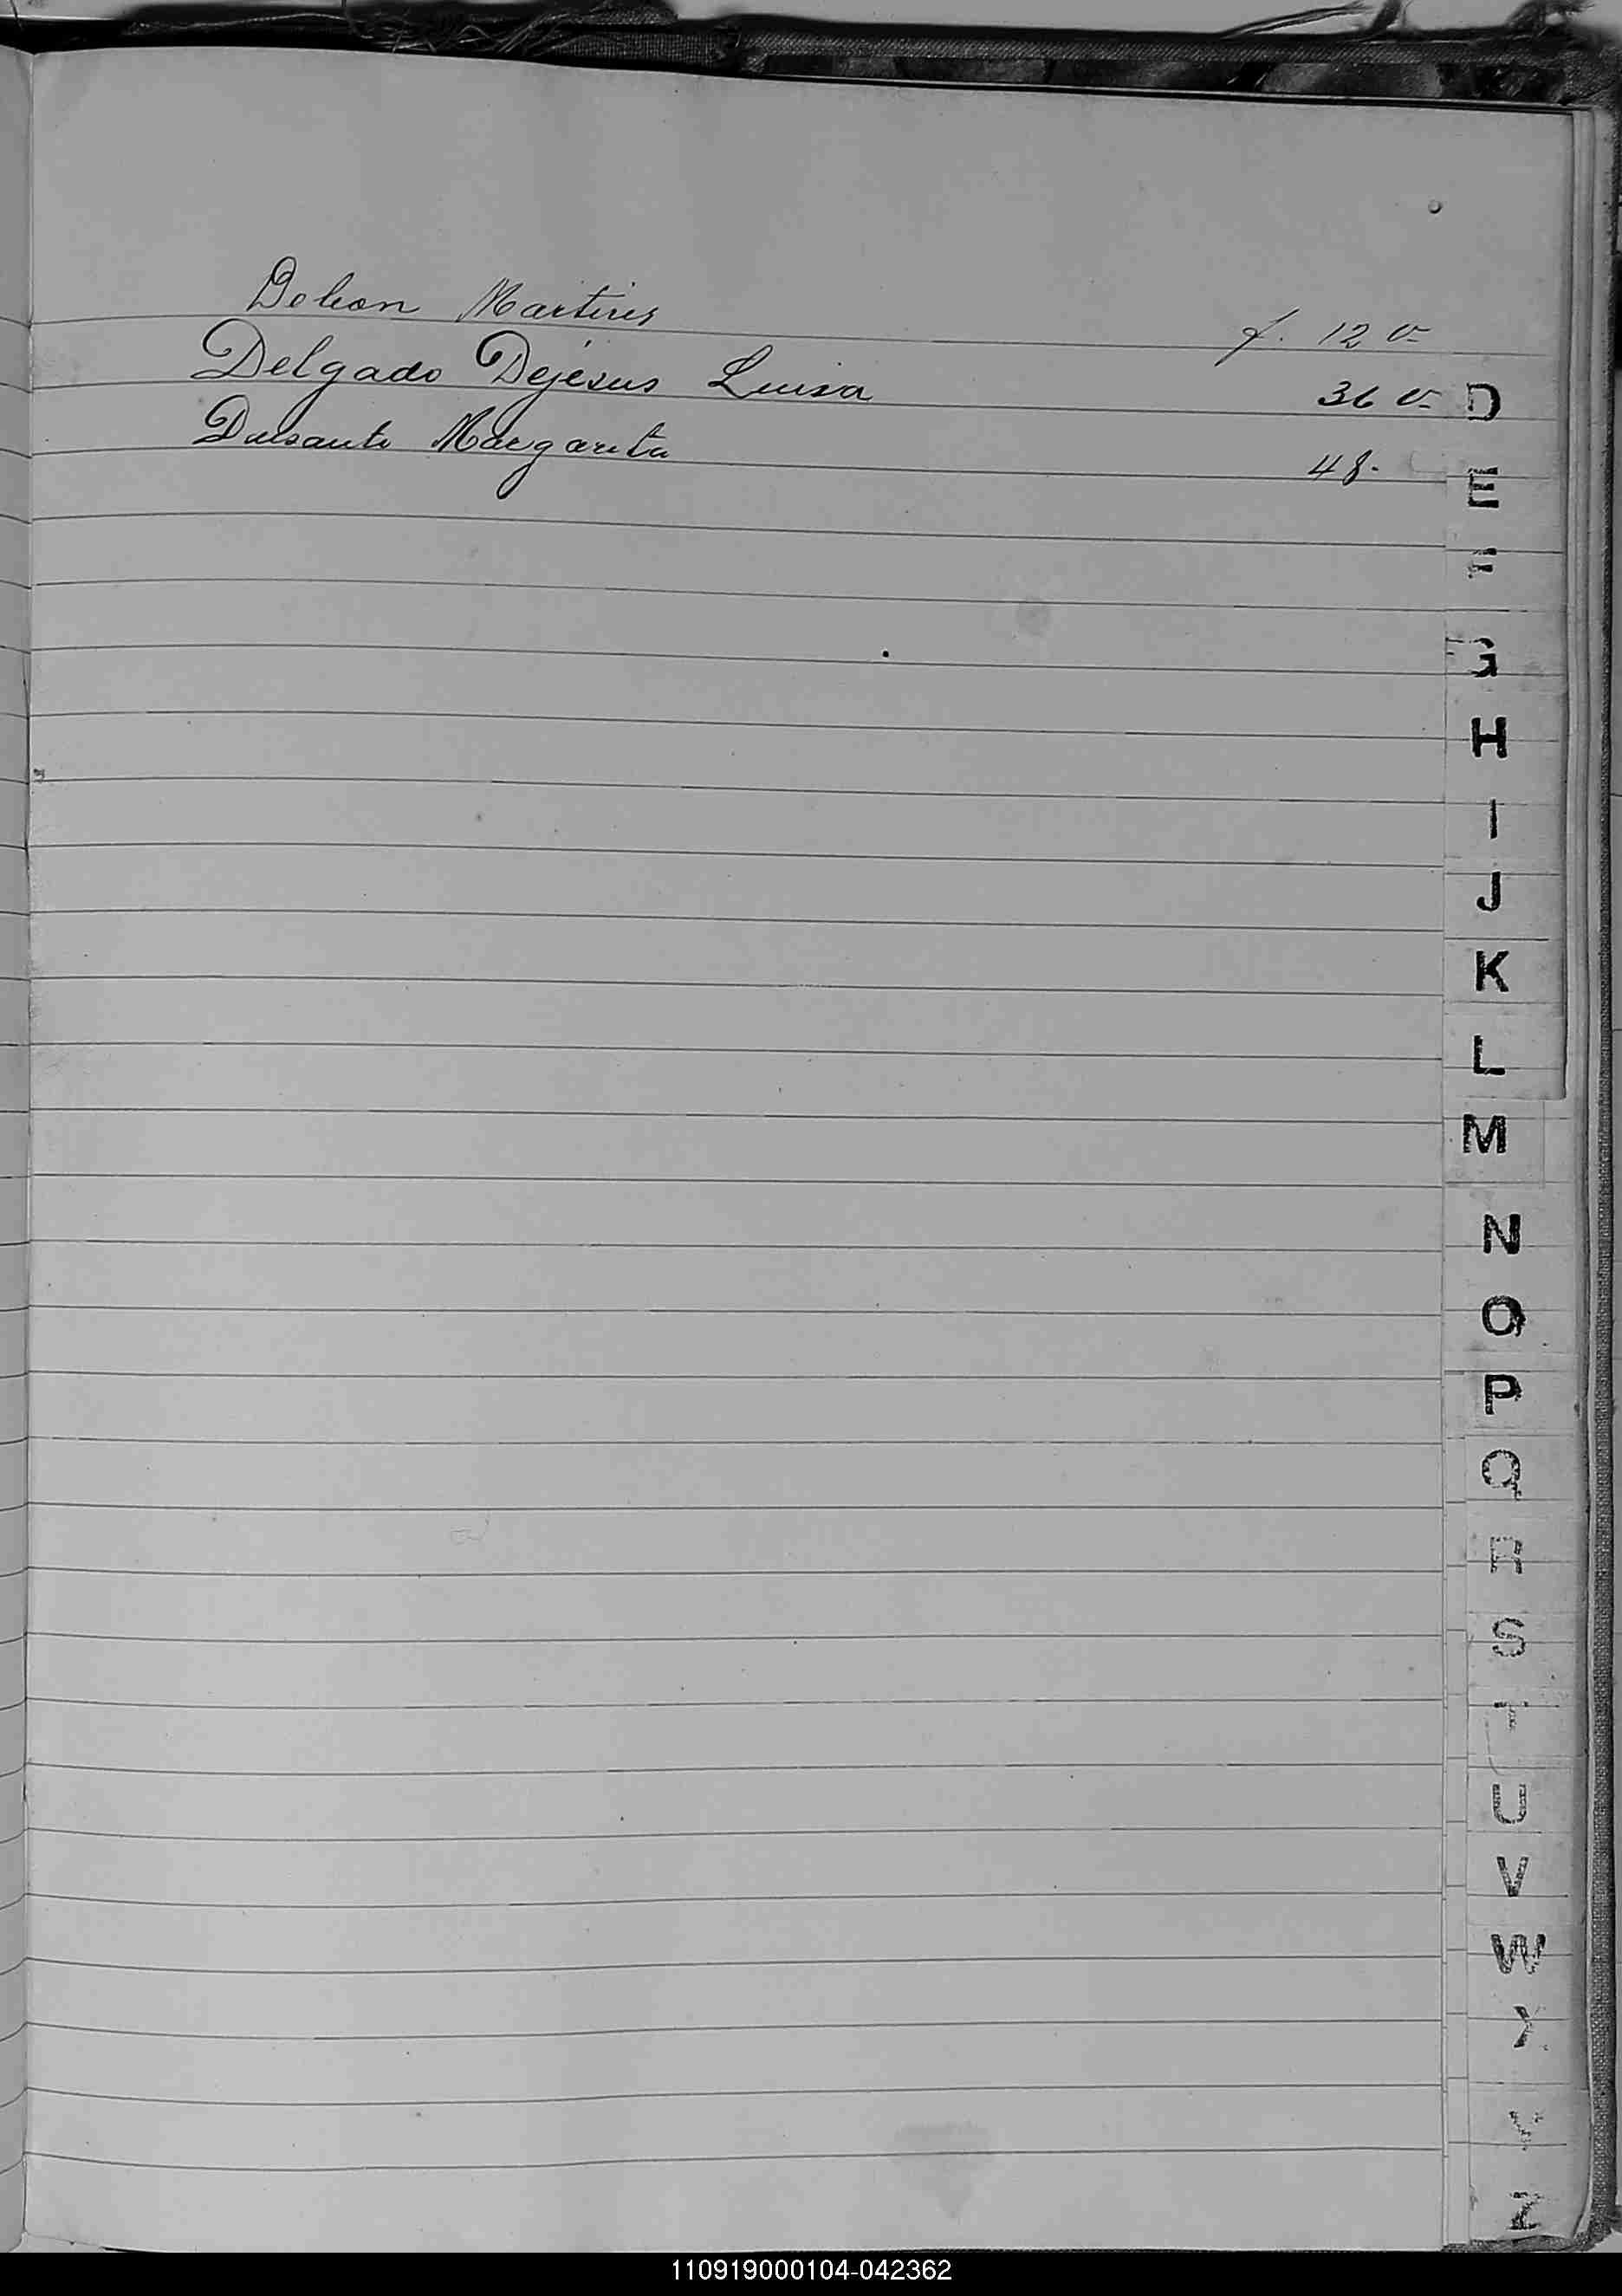 Martires f. 12 v-
Delgado Dejésus Luisa 36 v-
Margarita 48-
D
E
F
G
H
I
J
K
L
M
N
O
P
Q
R
S
T
U
V
W
X
Y
Z
110919000104-042362